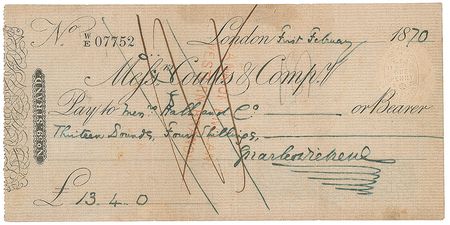 No W/E 07752 London First February 1870
Messrs Coutts & Compy
Pay to Messrs Hall and Co or Bearer
Thirteen Pounds, Four Shillings,
Charles Dickens
£ 13. 4. 0
No 59 STRAND